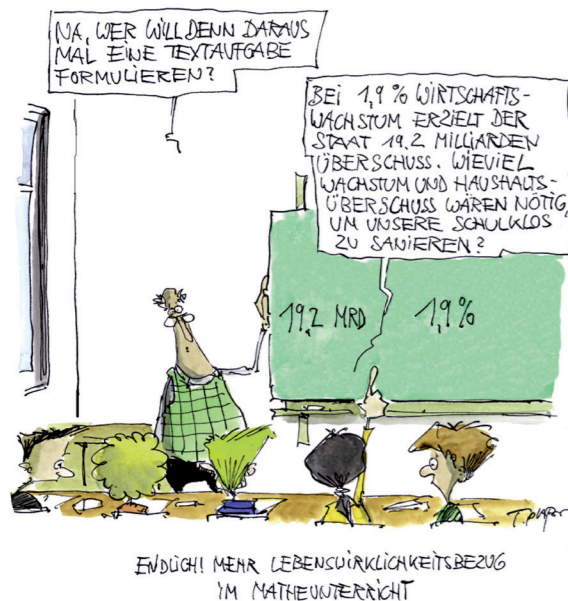 NA, WER WILL DENN DARAUS
MAL EINE TEXTAUFGABE
FORMULIEREN?
BEI 1,9 % WIRTSCHAFTS-
WACHSTUM ERZIELT DER
STAAT 19,2 MILLIARDEN
ÜBERSCHUSS. WIEVIEL
WACHSTUM UND HAUSHALTS-
ÜBERSCHUSS WÄREN NÖTIG,
UM UNSERE SCHULKLOS
ZU SANIEREN?
19,2 MRD
1,9%
ENDLICH! MEHR LEBENSWIRKLICHKEITSBEZUG
IM MATHEUNTERRICHT